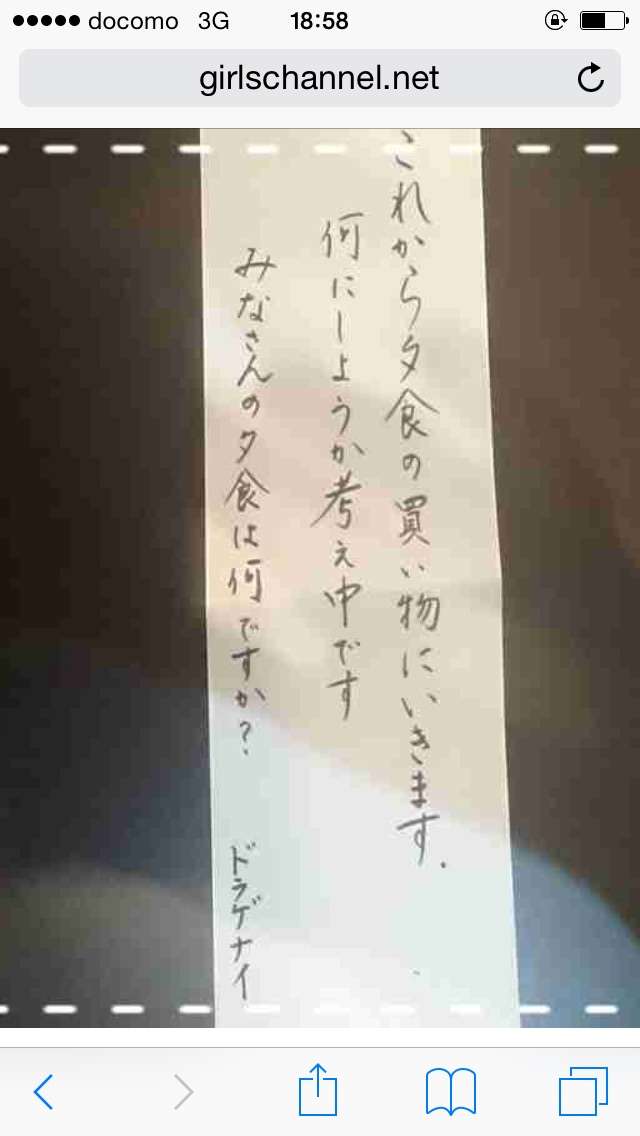 docomo 3G 18:58
girlschannel.net
これから夕食の買い物にいきます.
何にしようか考え中です
みなさんの夕食は何ですか?
ドラゲナイ